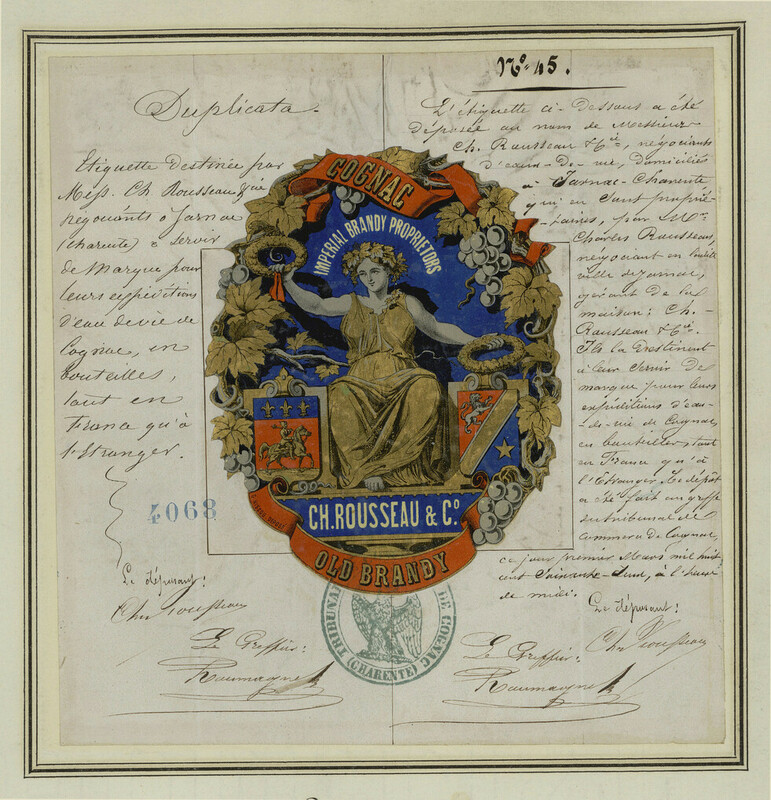 Nº 45.
Duplicata.
Etiquette destinée par
Mess. Ch Rousseau & Cie
négociants à Jarnac
(charente) à servir
de marque pour
leurs expéditions
d'eau de vie de
Cognac, en
bouteilles,
tant en
France qu'à
l'Etranger.
4068
Le déposant:
Chs Rousseau
Le Greffier:
L'étiquette ci-Dessous a été
déposée au nom de Messieurs
Ch. Rousseau & Cie, négociants
d'eaux-De-vie, domiciliés
à Jarnac-Charente
qui en sont proprié-
taires, par Mr
Charles Rousseau,
négociant en
ville de Jarnac,
gérant De la
maison: Ch.
Rousseau & Cie.
Ils la Destinent
à leur servir De
marque pour leurs
expéditions d'eau-
de-vie de Cognac
en bouteilles, tant
en France qu'à
l'Etranger. Le dépôt
a été fait au greffe
du tribunal de
Commerce de Cognac,
ce jour premier Mars mil huit
cent Soixante-, à l'heure
de midi.
Le déposant:
Chs Rousseau
Le Greffier:
COGNAC
IMPERIAL BRANDY PROPRIETORS
CH. ROUSSEAU & Cº
OLD BRANDY
TRIBUNAL DE COGNAC
(CHARENTE)